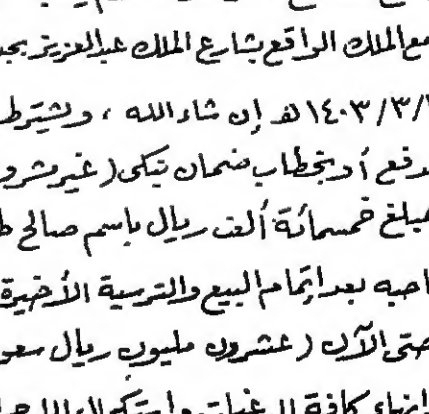 مع الملك الواقع بشارع الملك عبدالعزيز بجد
١٤٠٣/٣/١ هـ إن شاء الله ، ويشترط
دفع أو بخطاب ضمان بنكى ( غير مشرو
مبلغ خمسمائة ألف ريال باسم صالح ط
احبه بعد إتمام البيع والترسية الأخيرة
حتى الآن ( عشرون مليون ريال سعو
انهاء كافة الرغبات واستكمال